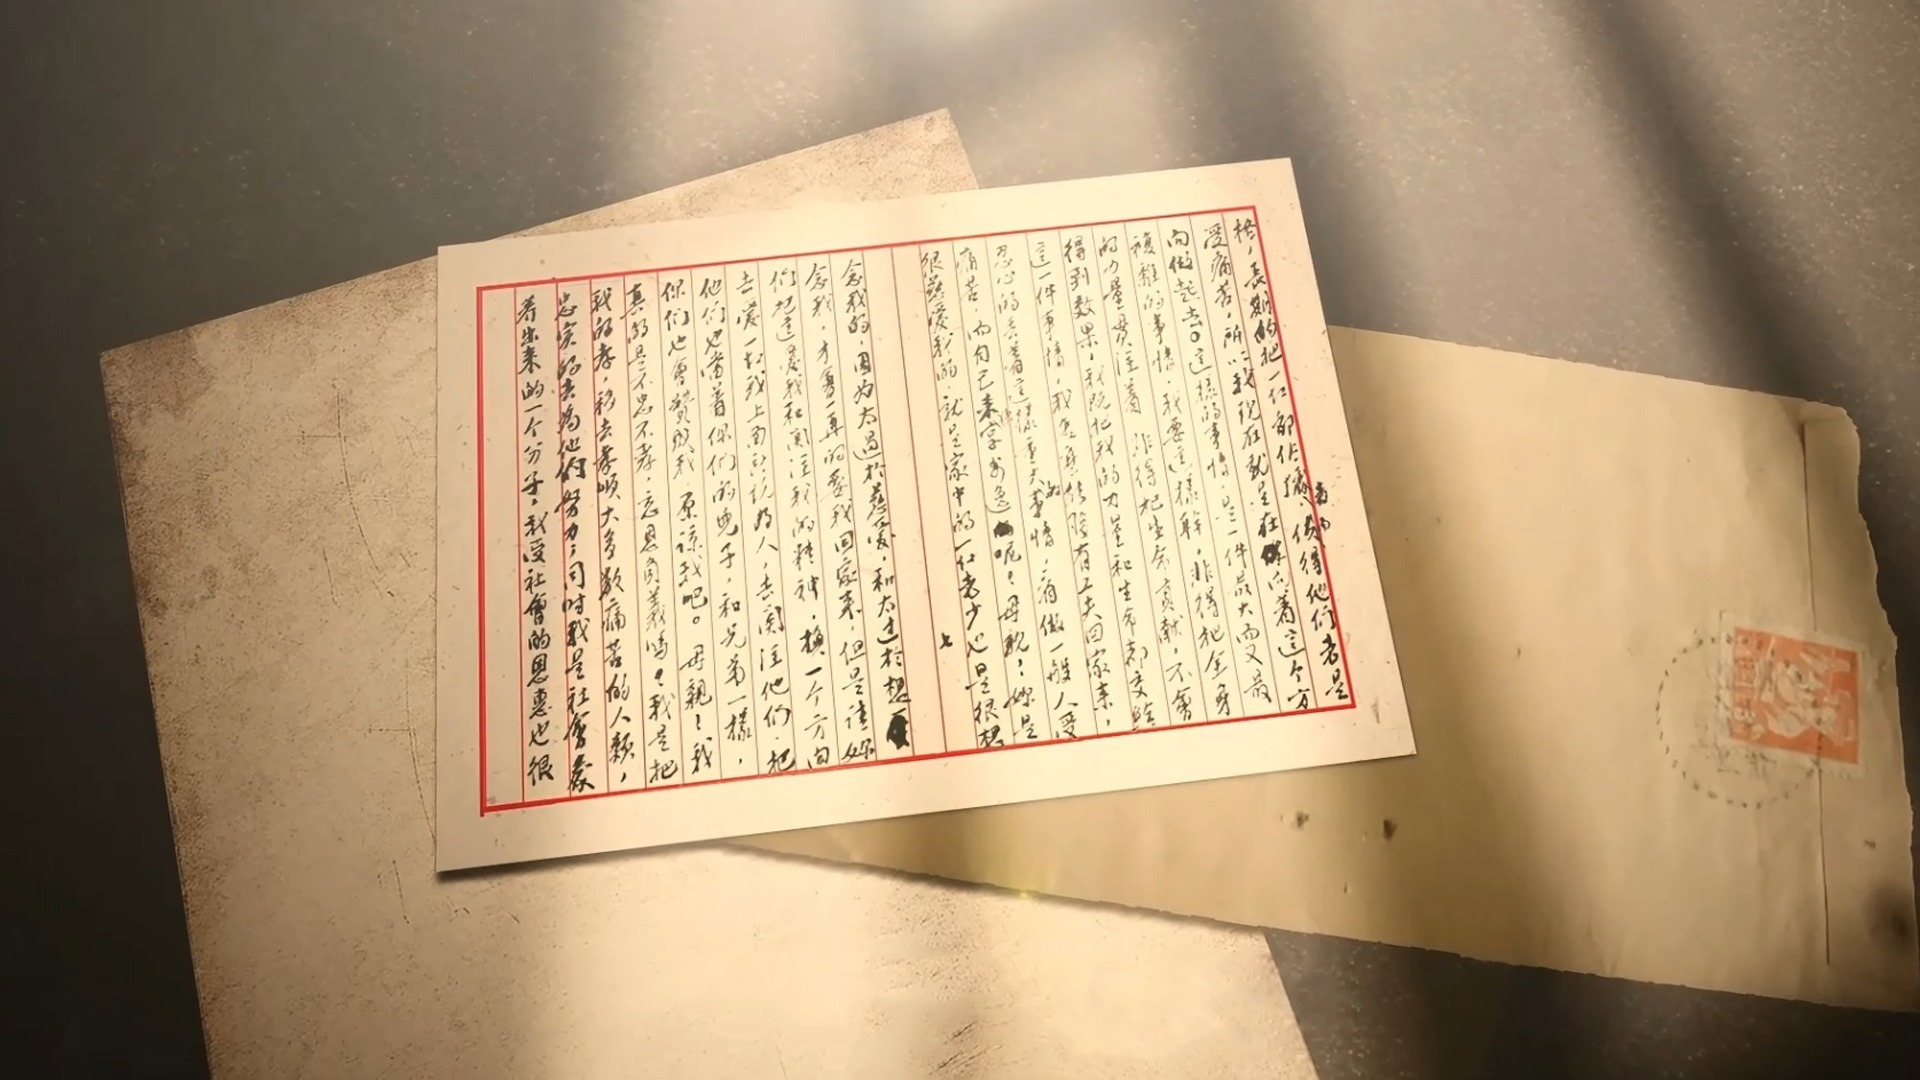 格，長期的把一切都佔據，使得他們老是
受痛苦，所以我現在就是在向着這个方
向做起去。這樣的事情，是一件最大而又最
複雜的事情，我要這樣幹，非得把全身
的力量貫注着 非得把生命貢献，不會
得到效果，我既把我的力量和生命都交給
這一件事情，我怎麼能夠有工夫回家來，
忍心的丟着這樣重大的事情，看做一般人受
痛苦，而自己來享安逸呢？母親！妳是
很慈愛我的，就是家中的一切老少也是很想
七
念我的，因为太過於慈愛，和太过於想
念我，才會一再的要我回家來，但是請妳
們把這愛我和関注我的精神，換一个方向
去愛一切我上面所説的人，去関注他們，把
他們也當着你們的兒子，和兄弟一樣，
你們也會贊成我，原諒我吧。母親！我
真的是不忠不孝，忘恩負義嗎？我是把
我的孝，移去孝順大多數痛苦的人類，
忠实的去为他們努力；同時我是社會養
着出來的一个分子，我受社會的恩惠也很